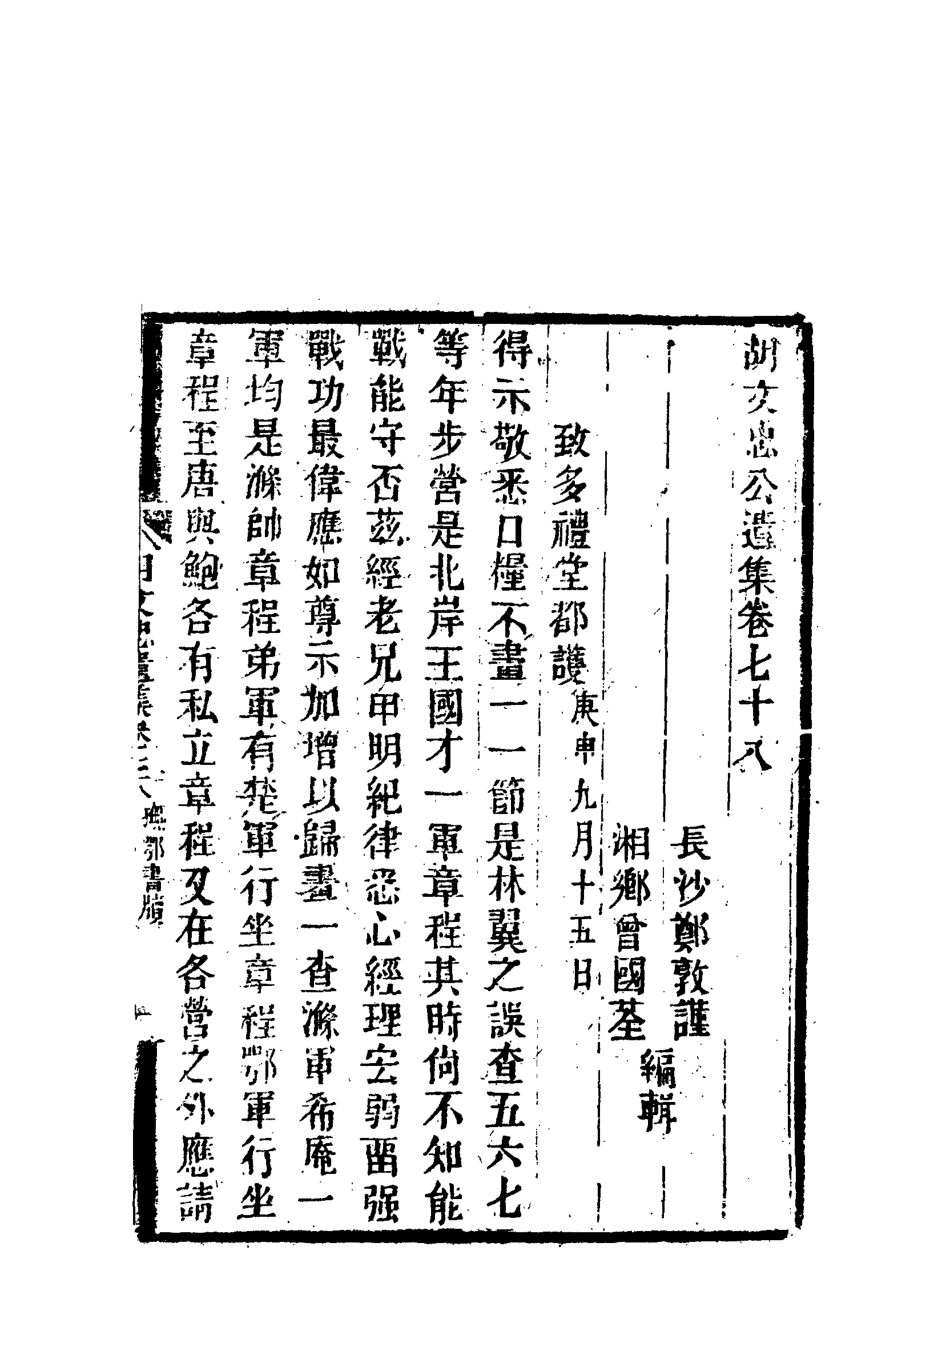 胡文忠公遺集卷七十八
長沙鄭敦謹
湘鄉曾國荃
編輯
致多禮堂都護庚申九月十五日
得示敬悉口糧不畫一一節是林翼之誤查五六七
等年步營是北岸王國才一軍章程其時尙不知能
戰能守否茲經老兄申明紀律悉心經理去弱留强
戰功最偉應如尊示加增以歸畫一查滌軍希庵一
軍均是滌帥章程弟軍有楚軍行坐章程鄂軍行坐
章程至唐與鮑各有私立章程又在各營之外應請
胡文忠遺集卷七十八 撫鄂書牘 一